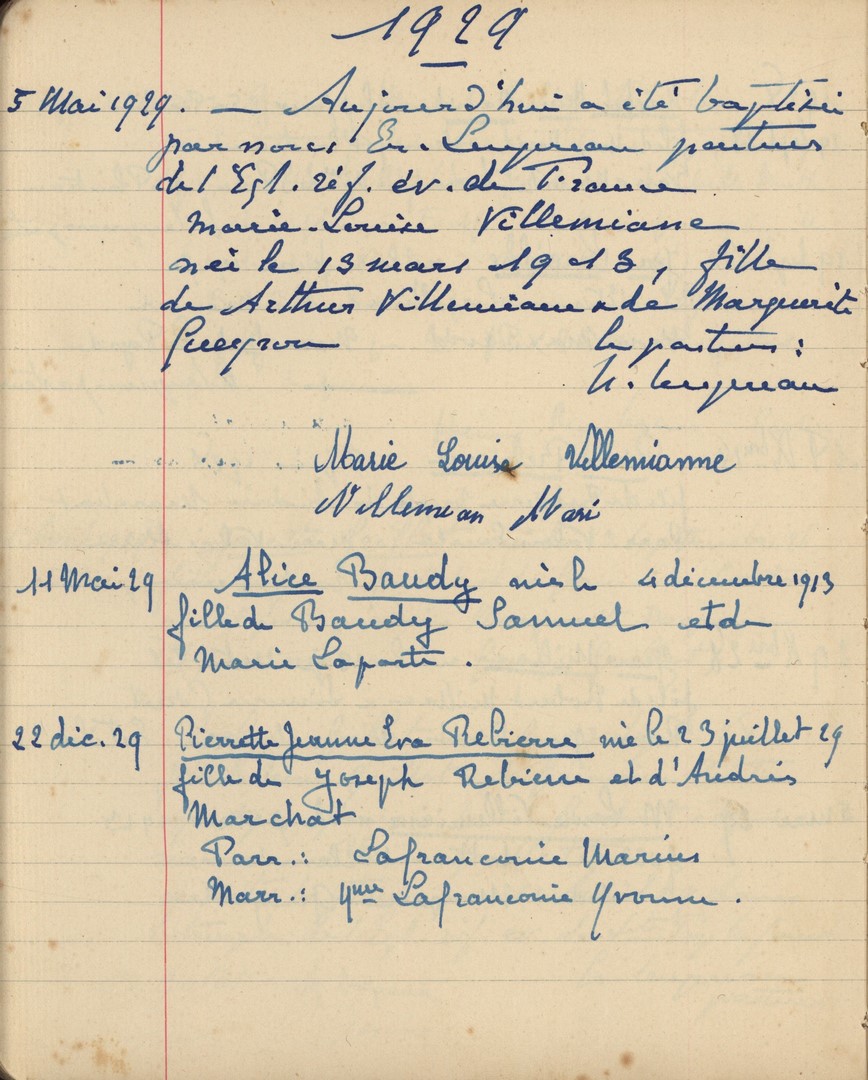 1929
5 Mai 1929. — Aujourd'hui a été baptisée
par nous pasteur
de l'Egl. réf. év. de France
Marie-Louise Villemiane
née le 13 mars 1913, fille
de Arthur Villemiane & de Marguerite
Gueyrou
le pasteur :
Marie Louise Villemianne
11 Mai 29 Alice Baudy née le 4 décembre 1913
fille de Baudy Samuel et de
Marie Laporte.
22 déc. 29 Pierrette Jeanne Eva Rebierre née le 23 juillet 29
fille de Joseph Rebierre et d'Andrée
Marchat
Parr. : Lafranconie Marius
Marr. : Mme Lafranconie Yvonne.